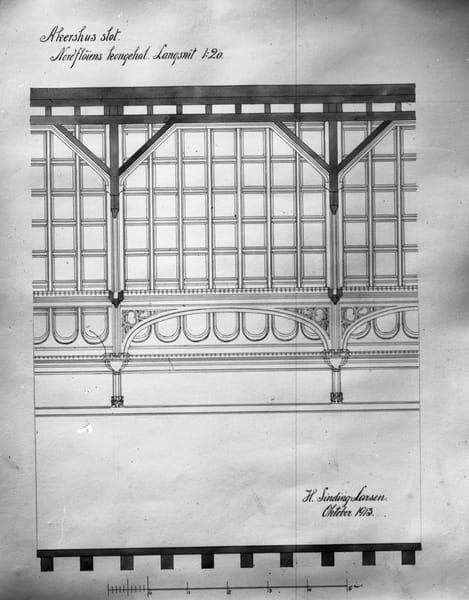 Akershus slot.
Nordfløiens kongehal. Langsnit 1:20.
H. Sinding-Larsen.
Oktober 1913.
0 1 2 3 4 5